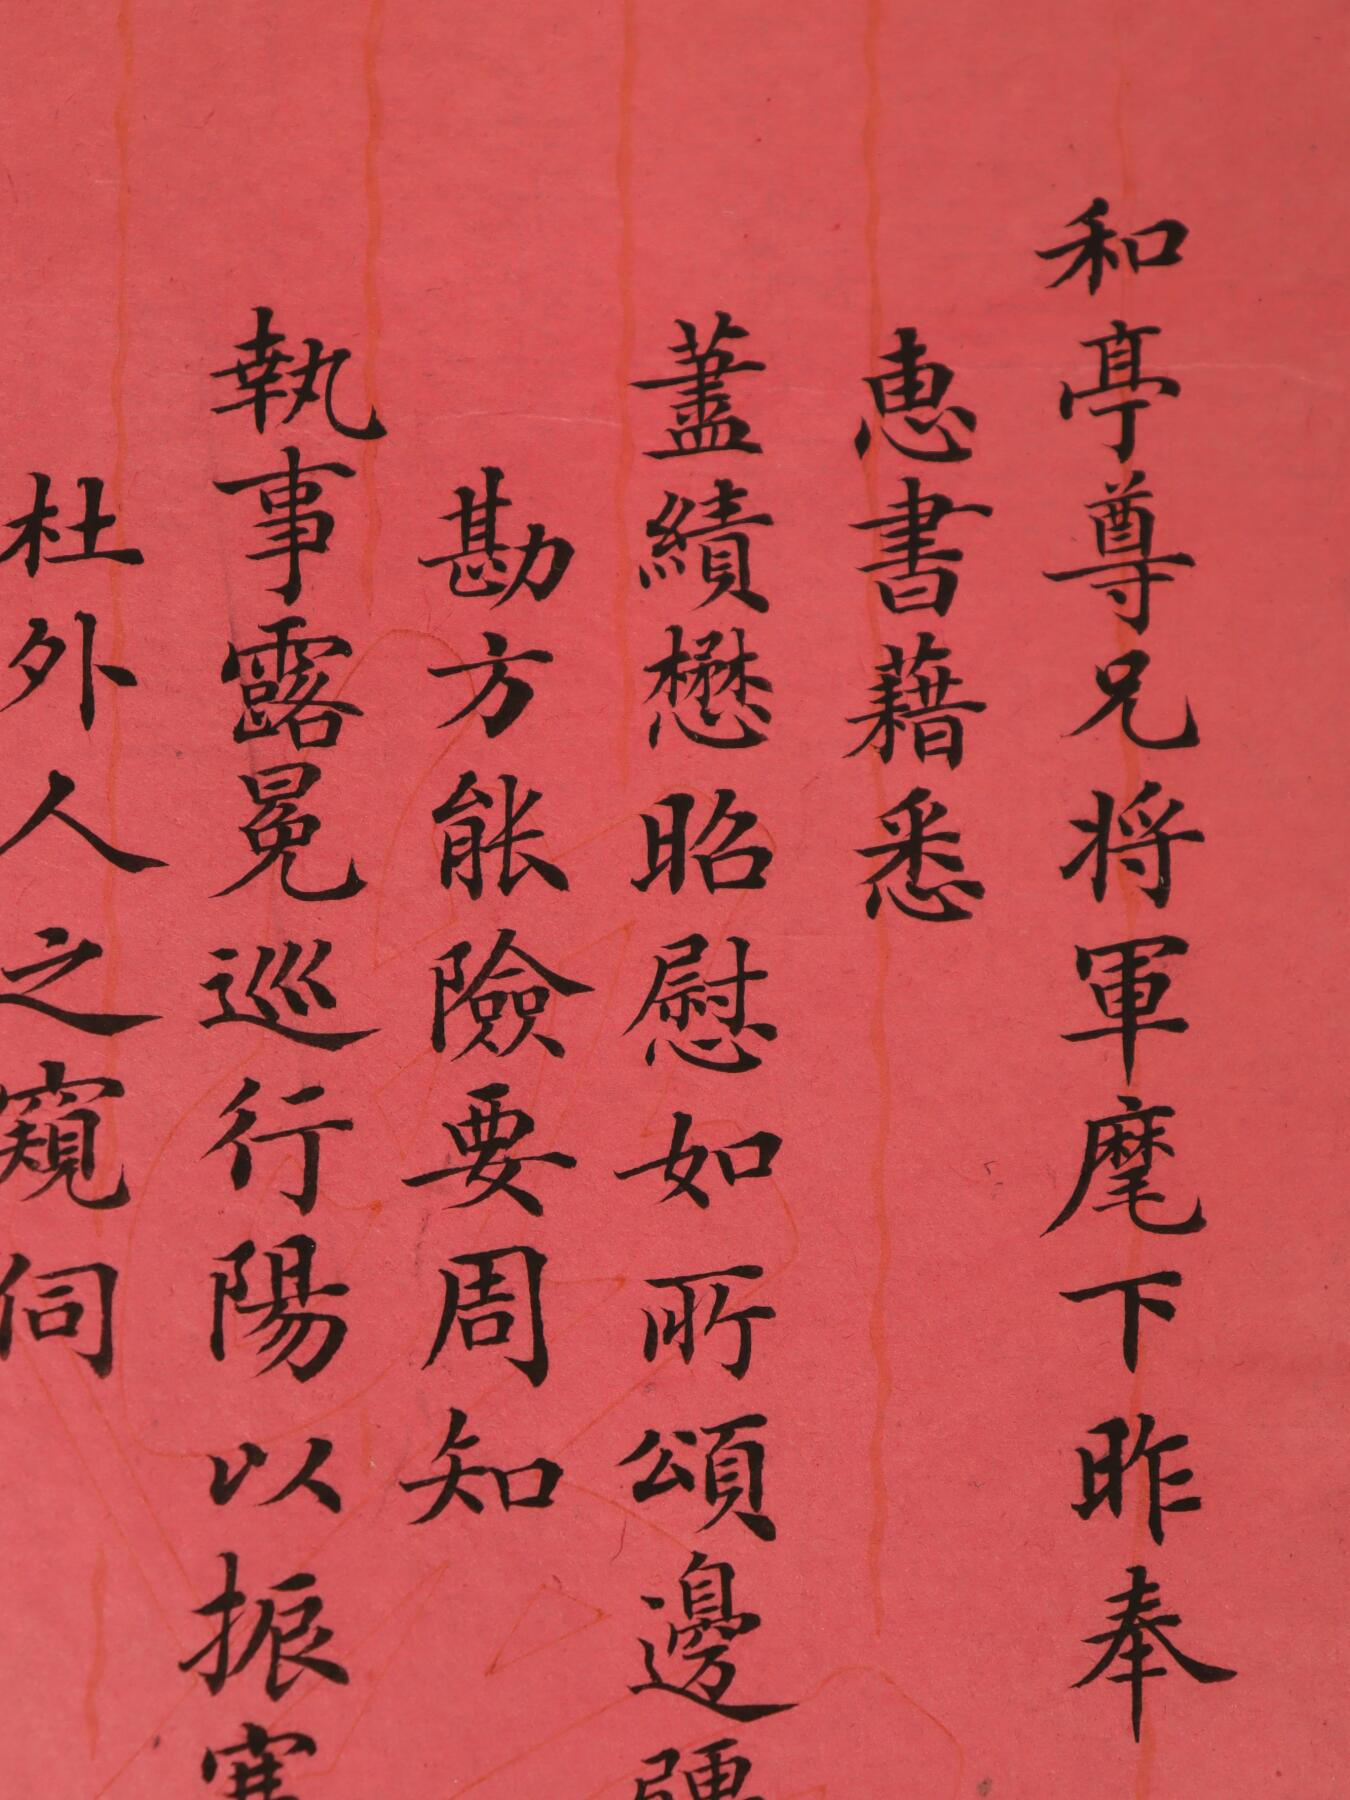 和亭尊兄将軍麾下昨奉
惠書藉悉
藎績懋昭慰如所頌邊疆
勘方能險要周知
執事露冕巡行陽以振
杜外人之窺伺